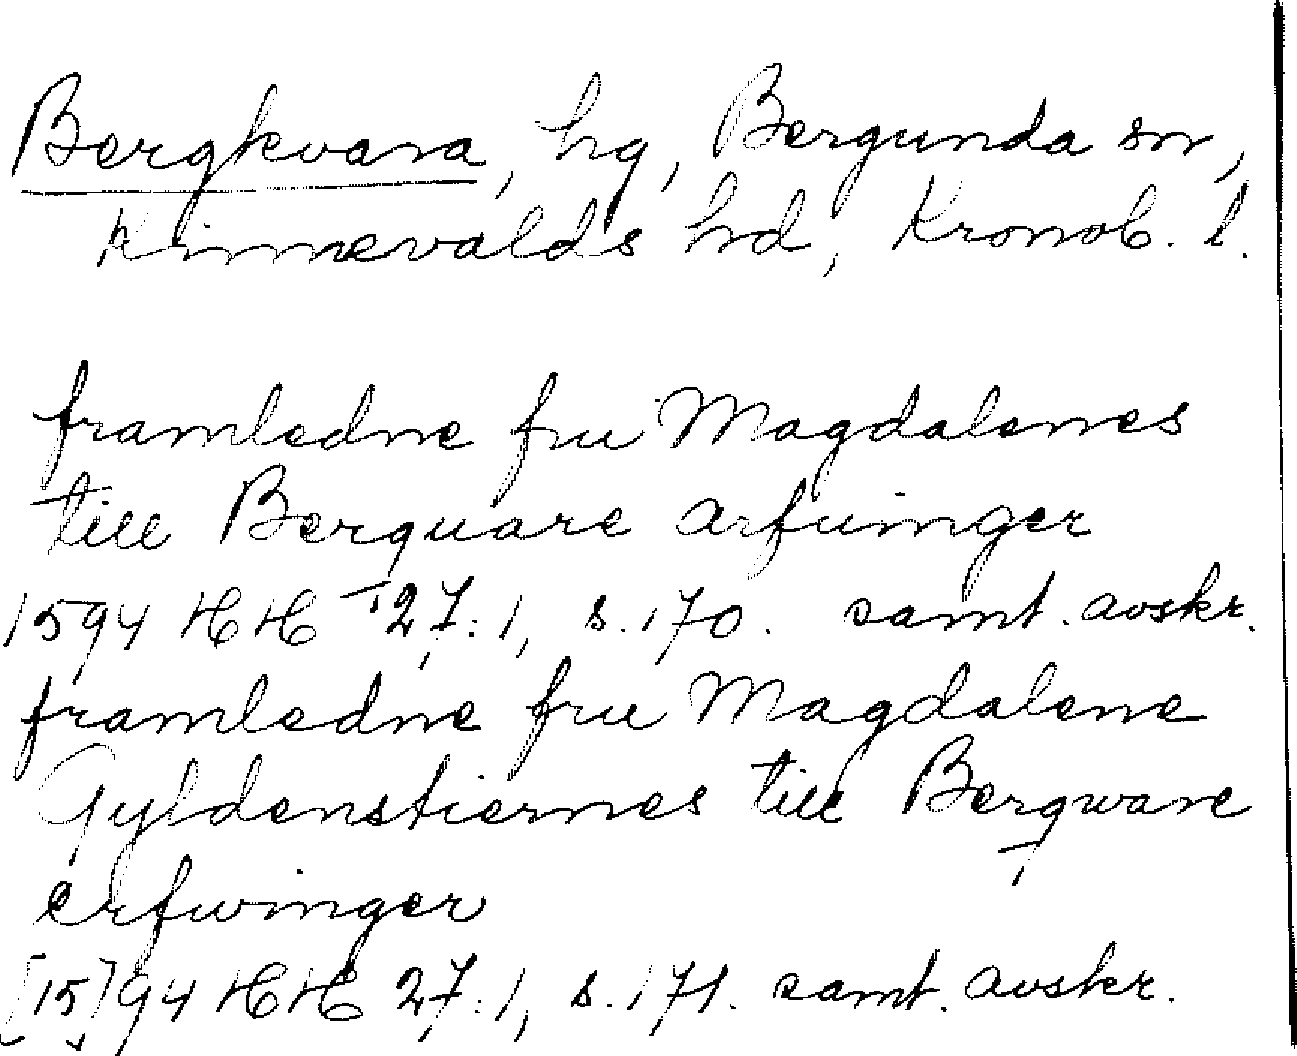 Bergkvara, hg, Bergunda sn,
Kinnevalds hd, Kronob. l.
framledne fru Magdalenes
till Berquare arfuinger
1594 HH 27:1, s. 170. samt. avskr.
framledne frue Magdalene
Gyldenstiernes till Bergware
erfwinger
[15]94 HH 27:1, s. 171. samt. avskr.